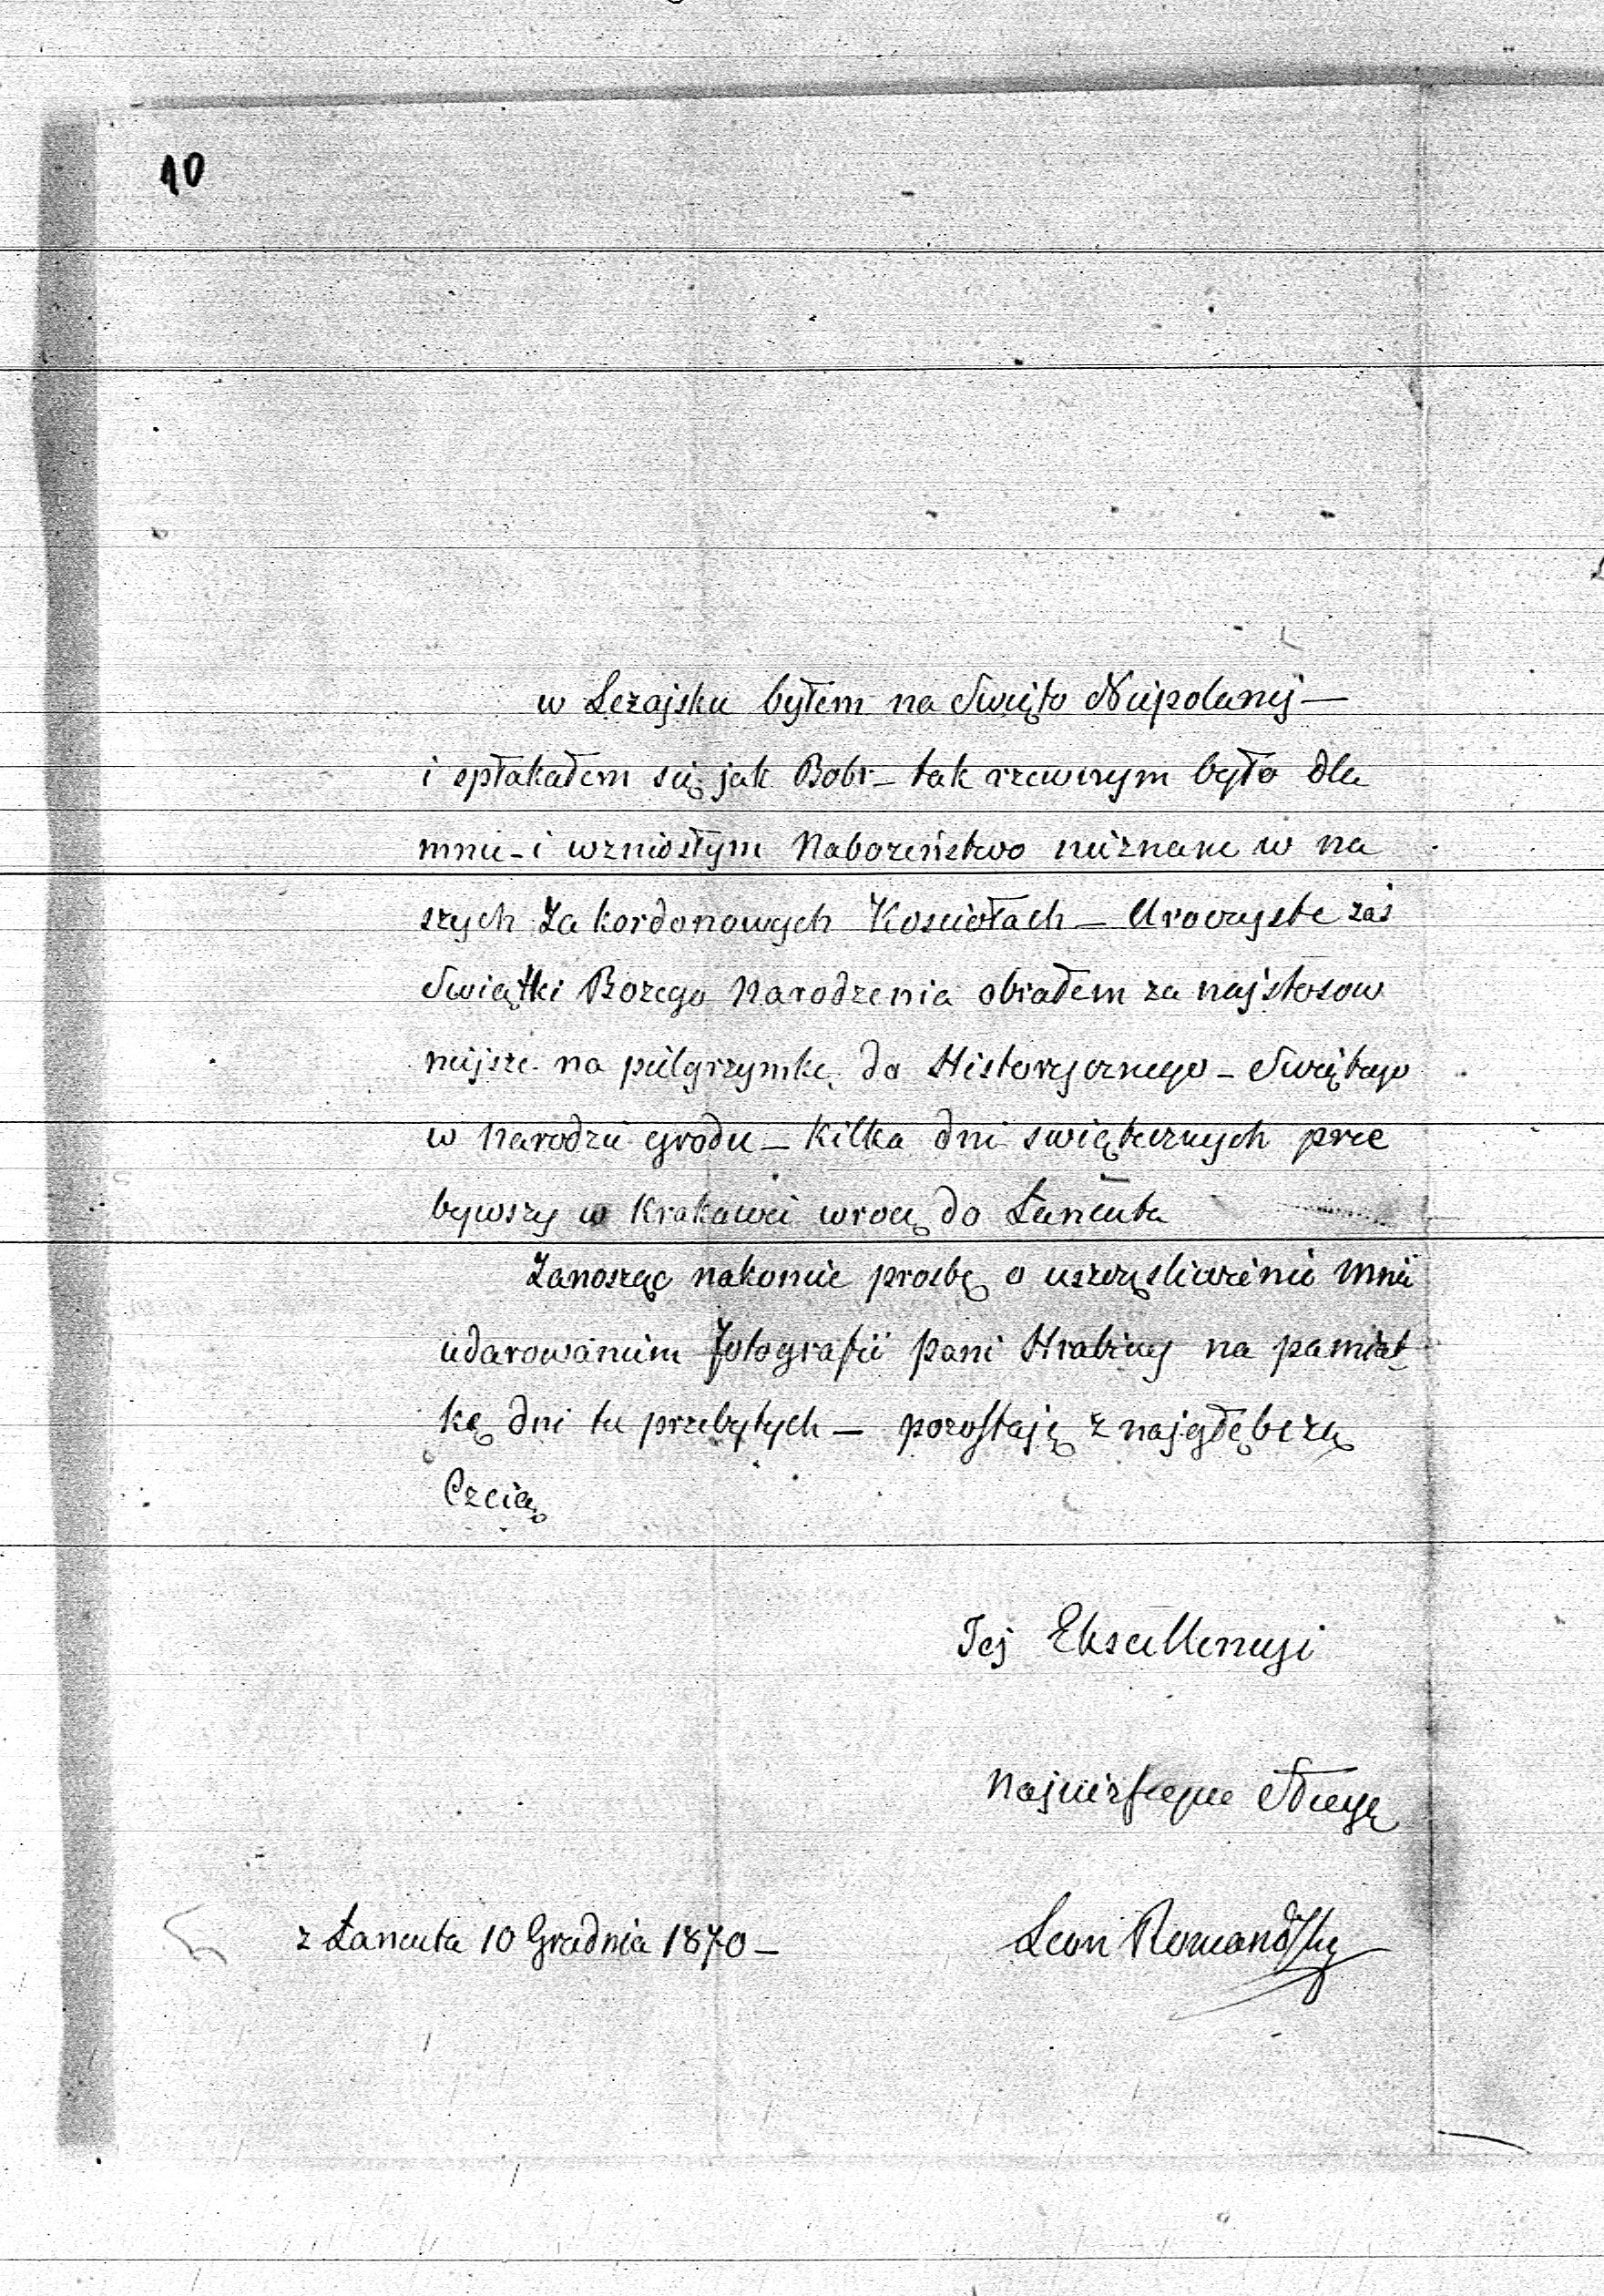 10
w Lezajsku byłem na Swięto Niepolanej —
i spłakałem się jak Bobr — tak rzewnym było dla
mnie — i wzniosłym Nabozeństwo nieznane w na
szych Za kordonowych Kosciołach — Uroczyste zaś
Swiątki Bozego Narodzenia obrałem za najstosow
niejsze na pielgrzymkę do Historycznego — Swiętego
w Narodzie grodu — Kilka dni swiątecznych prze
bywszy w Krakowie wrocę do Łancuta
Zanosząc nakoniec prosbę o uszczęsliwienie mnie
udarowaniem fotografii Pani Hrabiny na pamiąt
kę dni tu przebytych — pozostaję z najgłębszą
Czcią
Jej Ekscellencyi
Sługą
z Łancuta 10 Grudnia 1870 —
Leon